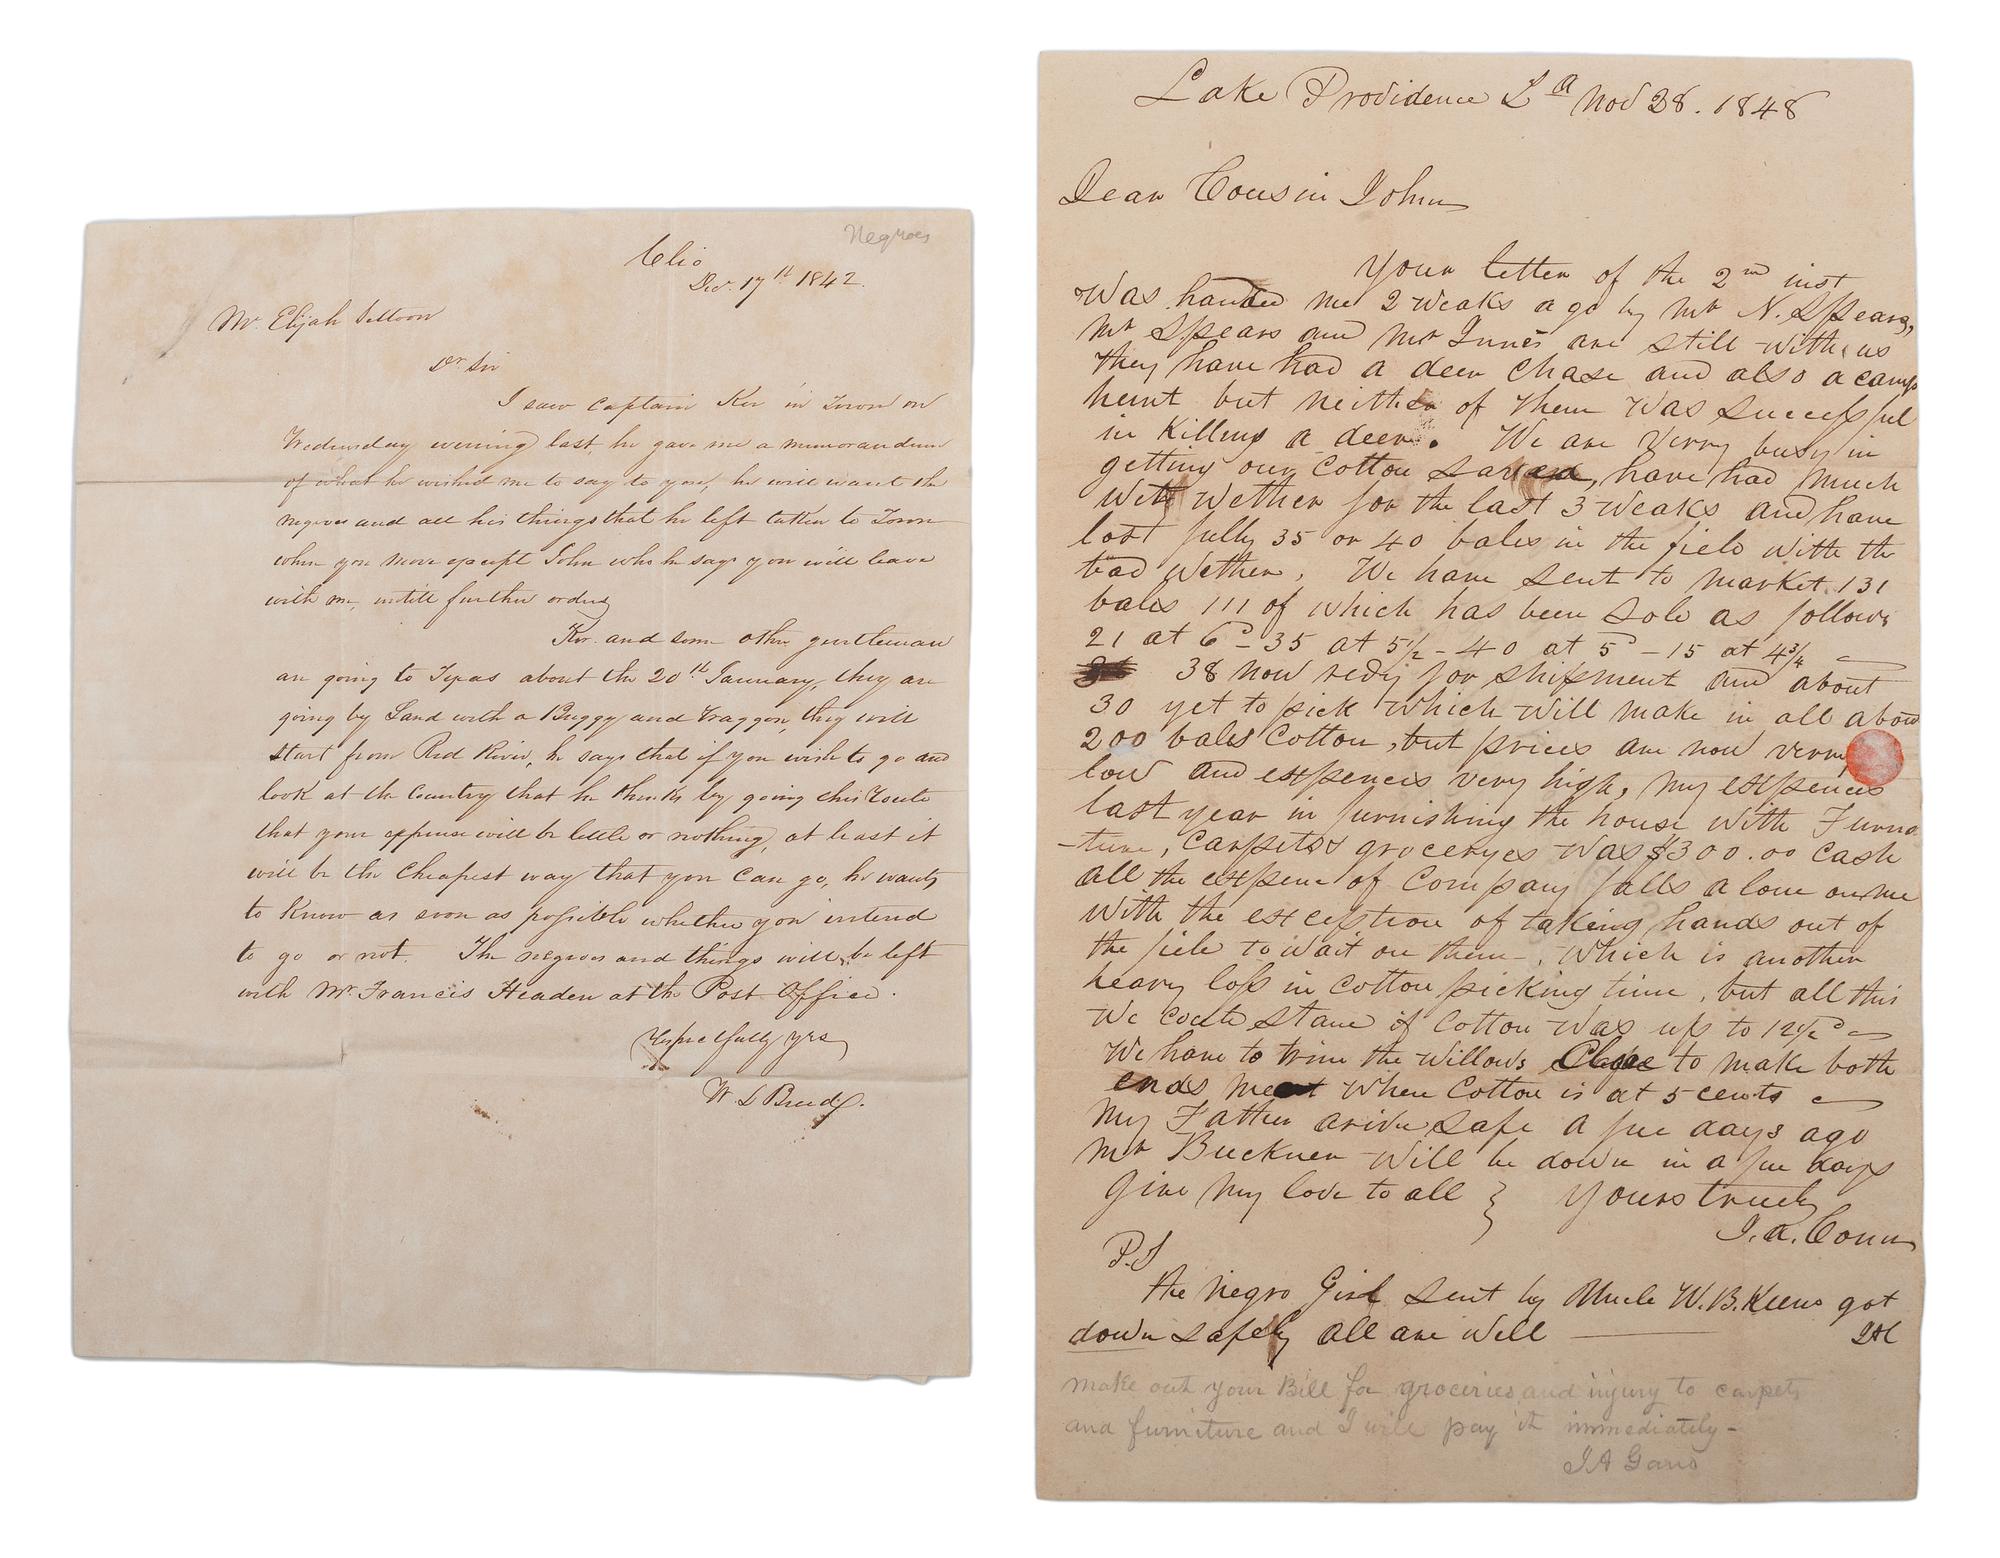 Negroes
Clio
Dec. 17th 1842.
Mr. Elijah
Dr Sir
I saw Captain Ker in Town on
Wednesday evening last, he gave me a memorandum
of what he wished me to say to you, he will want the
negroes and all his things that he left taken to Town
when you move except John who he says you will leave
with me, untill further orders
Ker. and some other gentleman
are going to Texas about the 20th January, they are
going by Land with a Buggy and Waggon, they will
start from Red River, he says that if you wish to go and
look at the Country that he thinks by going this Route
that your expense will be little or nothing, at least it
will be the Cheapest way that you can go, he wants
to know as soon as possible whether you intend
to go or not. The negroes and things will be left
with Mr. Francis Headen at the Post Office.
Respectfully yrs
W. L Breed
Lake Providence La Nov 28. 1848
Dear Cousin John
Your letter of the 2nd inst
Was handed me 2 weaks a go by Mr N. Spears,
Mr Spears and Mr Innes are still with us
they have had a deer chase and also a camp
hunt but neither of them was successful
in killing a deer. We are verry busy in
getting our cotton saved, have had much
wett wether for the last 3 weaks and have
lost fully 35 or 40 bales in the field with the
bad wether. We have sent to market 131
bales 111 of which has been sold as follows
21 at 6c - 35 at 5½ - 40 at 5c - 15 at 4¾
38 now redy for shipment and about
30 yet to pick which will make in all about
200 bales Cotton, but prices are now verry
low and expences very high, my expences
last year in furnishing the house with Furna
-ture, carpets & groceryes was $300.00 cash
all the expence of company falls alone on me
with the exception of taking hands out of
the field to wait on them, which is another
heavy loss in cotton picking time, but all this
we could stand if cotton was up to 12½c
We have to trim the willows close to make both
ends meet when Cotton is at 5 cents
My Father arived safe a few days ago
Mr Buckner will be down in a few days
Give my love to all } Yours truly
J. A.
P.S
the Negro Girl sent by Uncle W. B. Keene got
down safely all are well
make out your Bill for groceries and injury to carpets
and furniture and I will pay it immediately -
J A Gano